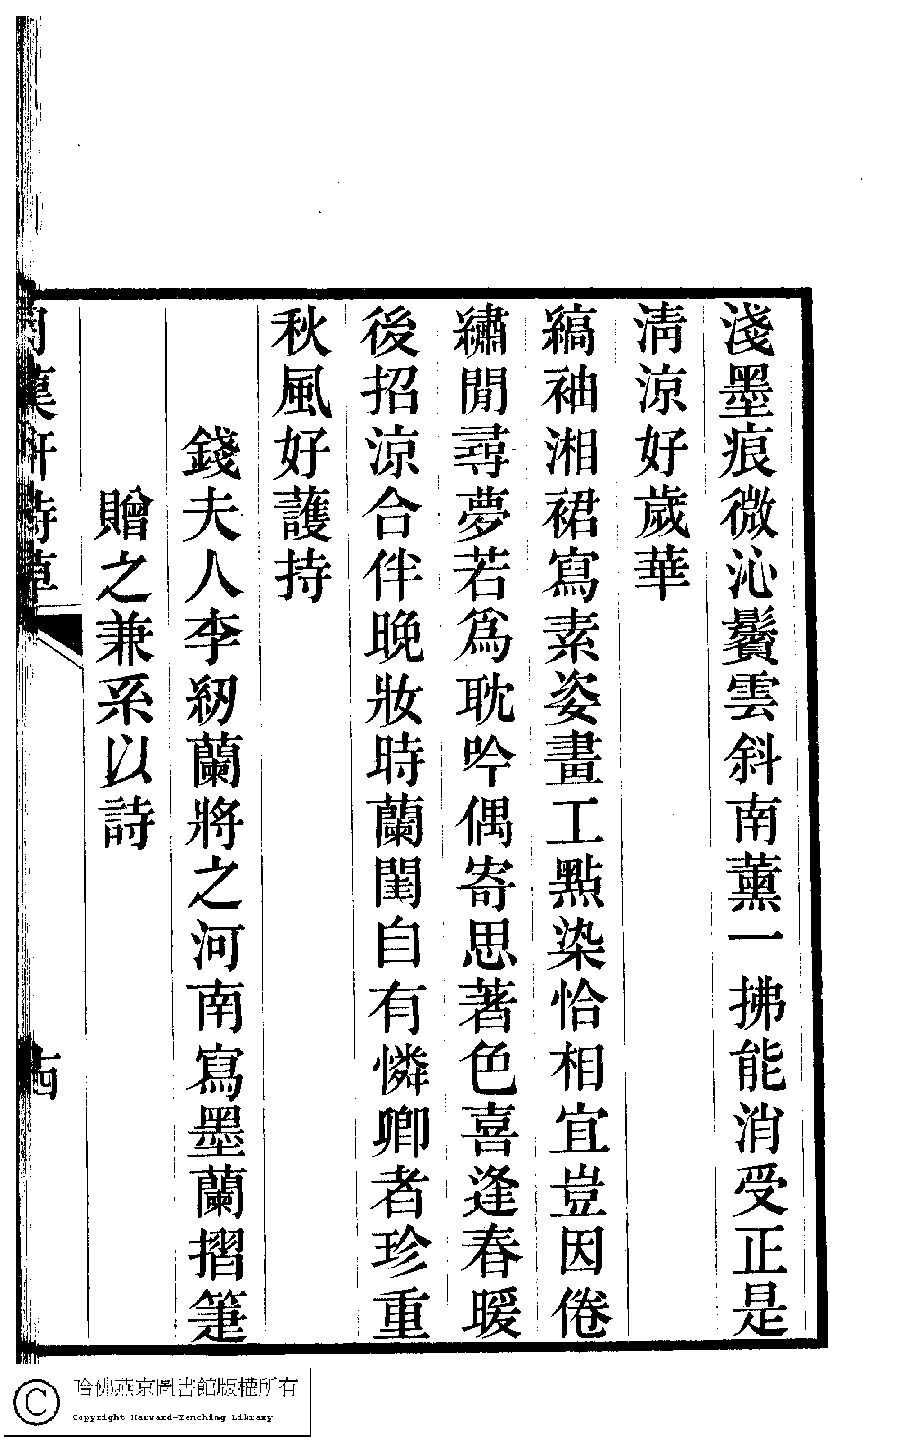 淺墨痕微沁鬢雲斜南薰一拂能消受正是
清涼好歲華
縞袖湘裙寫素姿畫工點染恰相宜豈因倦
繡閒尋夢若爲耽吟偶寄思著色喜逢春暖
後招涼合伴晚妝時蘭閨自有憐卿者珍重
秋風好護持
錢夫人李紉蘭將之河南寫墨蘭摺箑
贈之兼系以詩
哈佛燕京圖書館版權所有
Copyright Harvard-Yenching Library